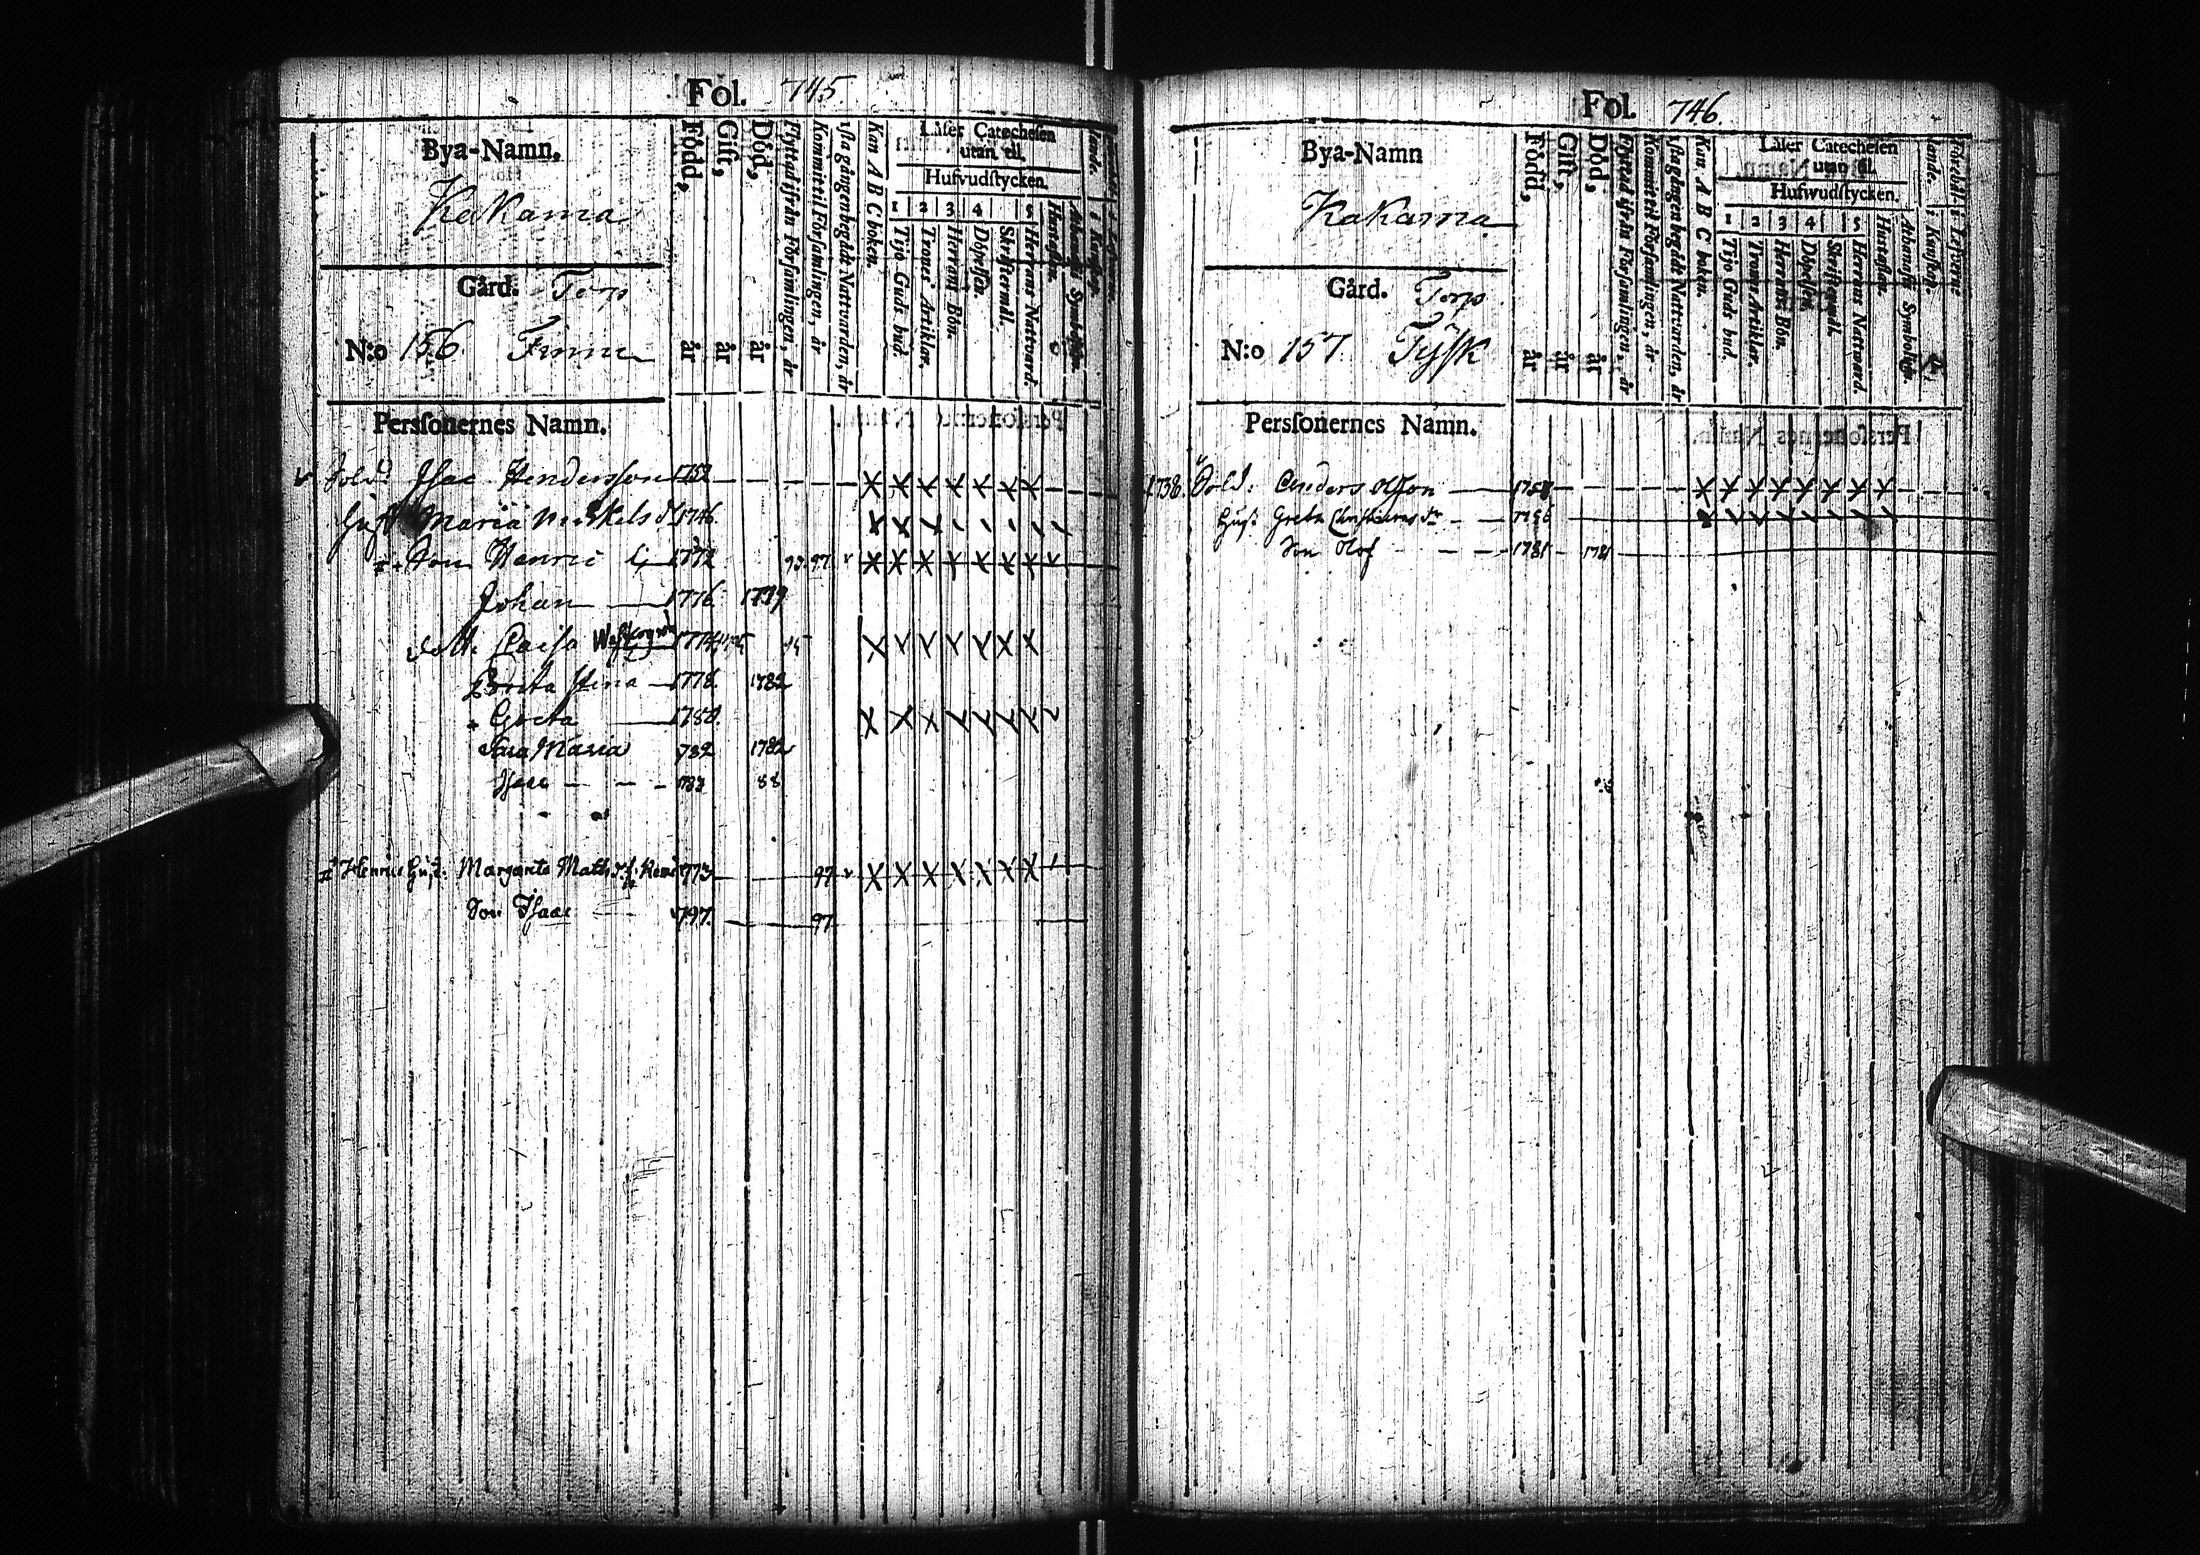 Fol. 745.
Bya-Namn.
Kakama
Gård. Torp
N:o 156. Finne
Född, år
Gift, år
Död, år
Flyttad ifrån Församlingen, år
Kommit til Församlingen, år
1sta gången begådt Nattvarden, år
Kan A B C boken.
Läser Catechesen
utan til.
Hufvudstycken.
1 2 3 4 5
Tijo Guds bud.
Trones Artiklar.
Herrans Bön.
Döpelsen.
Skriftermål.
Herrans Nattvard.
Hustaflan.
Athanasii Symbolum.
Perssonernes Namn.
Sold. Isac Hendersson 1752
Hust Maria Michels dr 1746.
Son Henric 1772 93. 97
Johan 1776 1779
dott. Caisa 1774
Brita Stina 1778 1782
Greta 1780.
Sara Maria 782 1782
Isaac 88
Henrics Hust. Margareta Math. dr 773 97
Son Isaac 797. 97
Fol. 746.
Bya-Namn
Kakama
Gård. Torp
N:o 157. Tysk
Född, år
Gift, år
Död, år
Flyttad ifrån Församlingen, år
Kommit til Församlingen, år
1sta gången begådt Nattvarden, år
Kan A B C boken.
Läser Catechesen
utan til.
Hufwudstycken.
1 2 3 4 5
Tijo Guds bud.
Trones Artiklar.
Herrans Bön.
Döpelsen.
Skriftermål.
Herrans Nattward.
Hustaflan.
Athanasii Symbolum.
Perssonernes Namn.
Sold. Anders Olsson 1758
Hust. Greta Christiernsdr 1756
Son Olof 1781 1781